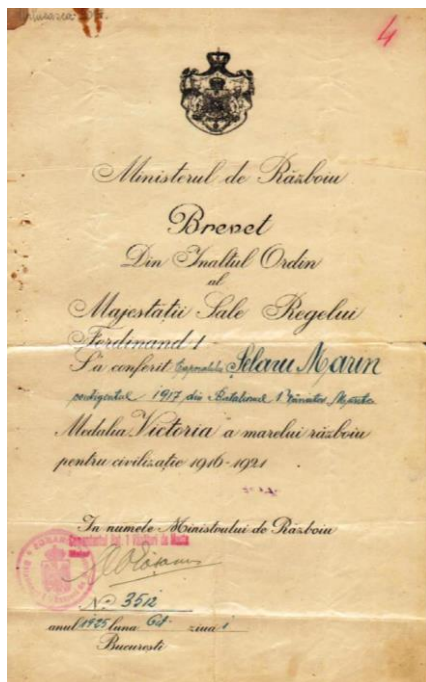 4
Ministerul de Războiu
Brevet
Din Inaltul Ordin
al
Majestății Sale Regelui
Ferdinand I
S'a conferit Caporalului Șelaru Marin
contigentul 1917 din Batalionul 1 Vânători
Medalia Victoria a marelui războiu
pentru civilizație 1916-1921
In numele Ministrului de Războiu
Comandantul Bat. 1 Vânători de Munte
No 3512
anul 1925 luna Oct. ziua 1
București